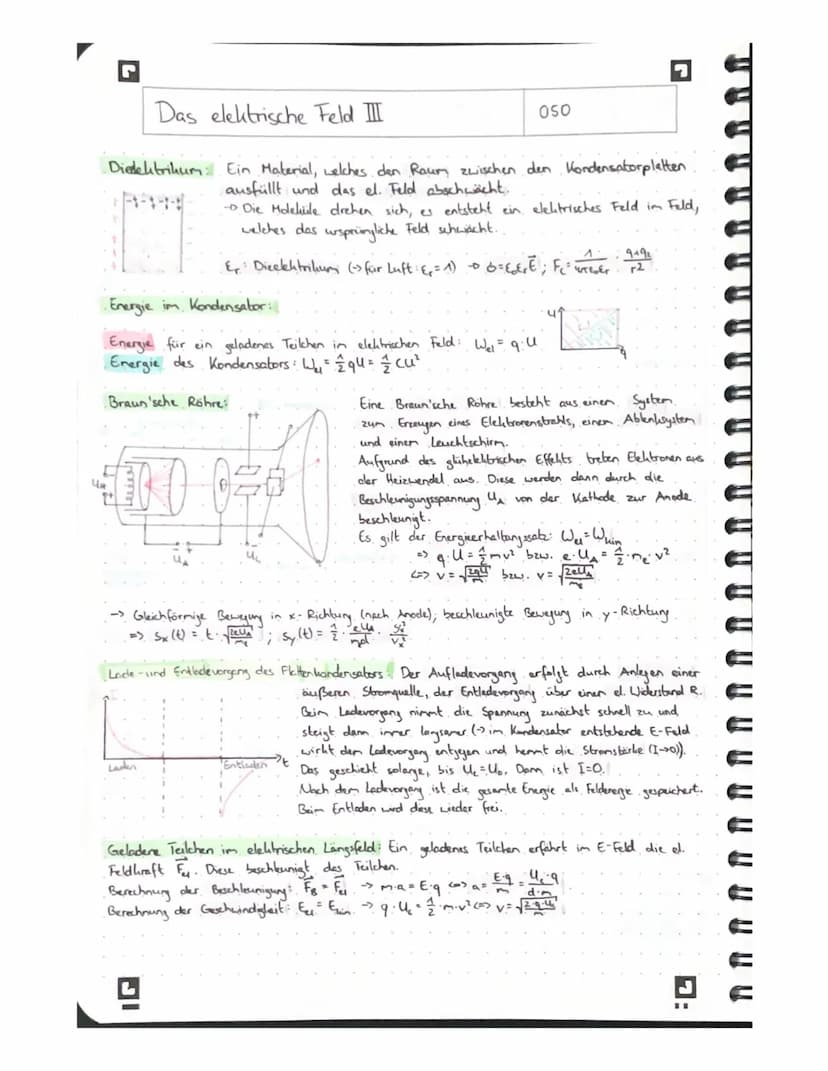 Das elektrische Feld III
050
Dielektrikum: Ein Material, welches den Raum zwischen den Kondensatorplatten
ausfüllt und das el. Feld abschwächt.
→ Die Moleküle drehen sich, es entsteht ein elektrisches Feld im Feld,
welches das ursprüngliche Feld schwächt.
εr: Dieelektrikum (→ für Luft: εr = 1) → σ = ε₀εrE⃗ ; Fc = 1/4πε₀εr · q₁q₂/r2
Energie im Kondensator:
U
q
Energie für ein geladenes Teilchen im elektrischen Feld: Wel = q · U
Energie des Kondensators: Wel = ½ qU = ½ CU²
Braun'sche Röhre:
Eine Braun'sche Röhre besteht aus einem System
zum Erzeugen eines Elektronenstrahls, einem Ablenksystem
und einem Leuchtschirm.
Aufgrund des glühelektrischen Effekts treten Elektronen aus
der Heizwendel aus. Diese werden dann durch die
Beschleunigungsspannung UA von der Kathode zur Anode
beschleunigt.
Es gilt der Energieerhaltungssatz: Wel = Wkin
=> q · U = ½ mv² bzw. e · UA = ½ · me · v²
<=> v = √(2qU/m) bzw. v = √(2eUA/me)
UH
UA
UC
→ Gleichförmige Bewegung in x-Richtung (nach Anode), beschleunigte Bewegung in y-Richtung
=> Sx(t) = t · √(2eUA/me) ; Sy(t) = ½ · eUA/md · Sx²/Vx²
Lade- und Entladevorgang des Plattenkondensators: Der Aufladevorgang erfolgt durch Anlegen einer
äußeren Stromquelle, der Entladevorgang über einen el. Widerstand R.
Beim Ladevorgang nimmt die Spannung zunächst schnell zu und
steigt dann immer langsamer (→ im Kondensator entstehende E-Feld
wirkt dem Ladevorgang entgegen und hemmt die Stromstärke (I→0)).
Das geschieht solange, bis UC = U₀. Dann ist I = 0.
Nach dem Ladevorgang ist die gesamte Energie als Feldenergie gespeichert.
Beim Entladen wird diese wieder frei.
I
Laden
Entladen
t
Geladene Teilchen im elektrischen Längsfeld: Ein geladenes Teilchen erfährt im E-Feld die el.
Feldkraft F⃗el. Diese beschleunigt das Teilchen.
Berechnung der Beschleunigung: F⃗B = F⃗el → m·a = E·q <=> a = E·q/m = UC·q/d·m
Berechnung der Geschwindigkeit: Eel = Ekin → q · UC = ½ · m · v² <=> v = √(2·q·UC/m)